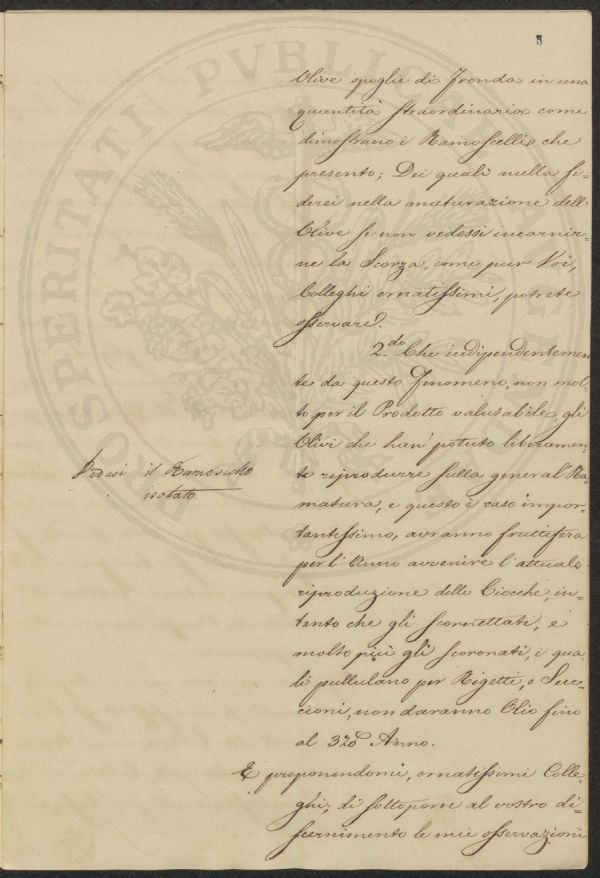 3
Olive spoglie di Fronda in una
quantità straordinaria come
dimostrano i Ramoscelli che
presento; Dei quali nulla fi=
derei nella maturazione dell'
Olive se non vedessi incarnir=
ne la Scorza, come pur Voi,
Colleghi ornatissimi, potrete
osservare.
2.do Che indipendentemen
te da questo Fenomeno, non mol=
to per il Prodotto valutabile, gli
Olivi che han' potuto liberamen=
te riprodurre sulla general Ra
matura, e questo è caso impor=
tantissimo, avranno fruttifera
per l'Anno avvenire l'attuale
riproduzione delle Ciocche, in=
tanto che gli scornettati, e
molto più gli scoronati, i qua=
li pullulano per Rigetti, o Suc=
cioni, non daranno Olio fino
al 3zo Anno.
Vedasi il Ramoscello
notato
E proponendomi, ornatissimi Colle=
ghi, di sottoporre al vostro di=
scernimento le mie osservazioni
PROSPERITATI PVBLICAE